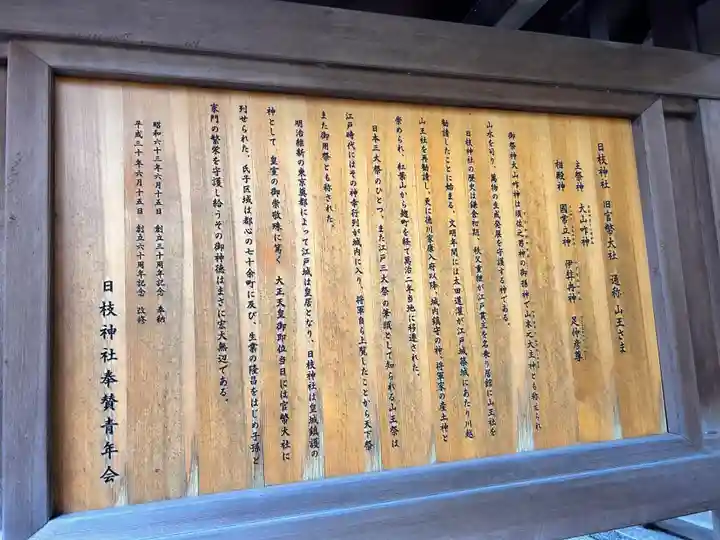 日枝神社 旧官幣大社 通称 山王さま
主祭神 大山咋神
相殿神 國常立神 伊弉冉神 足仲彦尊
御祭神大山咋神は須佐之男神の御孫神で山末之大主神とも称えられ
山水を司り、萬物の生成発展を守護する神である。
日枝神社の歴史は鎌倉初期、秩父重継が江戸貫主を名乗り居館に山王社を
勧請したことに始まる。文明年間には太田道灌が江戸城築城にあたり川越
山王社を再勧請し、更に徳川家康入府以降、城内鎮守の神、将軍家の産土神と
崇められ、紅葉山から麹町を経て萬治二年当地に移遷された。
日本三大祭のひとつ、また江戸三大祭の筆頭として知られる山王祭は
江戸時代にはその神幸行列が城内に入り、将軍自ら上覧したことから天下祭
また御用祭とも称された。
明治維新の東京奠都によって江戸城は皇居となり、日枝神社は皇城鎮護の
神として、皇室の御崇敬殊に篤く 大正天皇御即位当日には官幣大社に
列せられた。氏子区域は都心の七十余町に及び、生業の隆昌をはじめ子孫と
家門の繁栄を守護し給うその御神徳はまさに宏大無辺である。
昭和六十三年六月十五日 創立三十周年記念 奉納
平成三十年六月十五日 創立六十周年記念 改修
日枝神社奉賛青年会